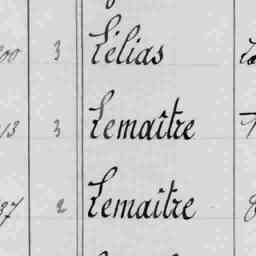 3 Lélias
3 Lemaître
2 Lemaitre